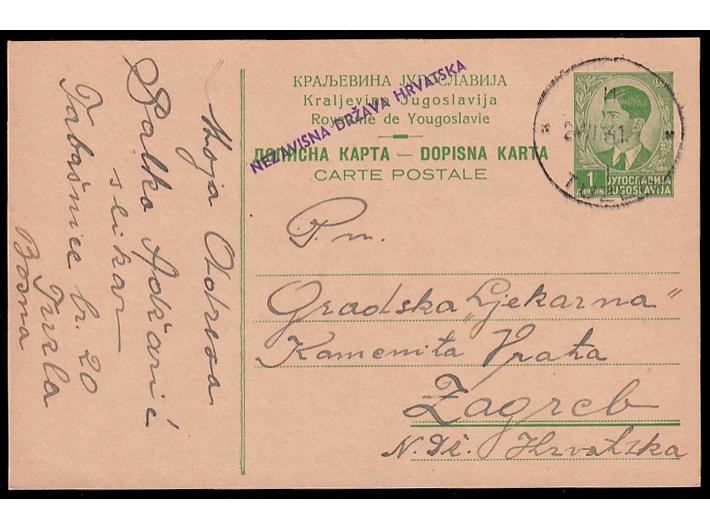 КРАЉЕВИНА ЈУГОСЛАВИЈА
Kraljevina Jugoslavija
Royaume de Yougoslavie
NEZAVISNA DRŽAVA HRVATSKA
ДОПИСНА КАРТА — DOPISNA KARTA
CARTE POSTALE
1
ДИНАР
ЈУГОСЛАВИЈА
JUGOSLAVIJA
P. n.
Gradska „Ljekarna"
Kamenita Vrata
Zagreb
Hrvatska
Moja Adresa
slikar
br. 20
Tuzla
Bosna